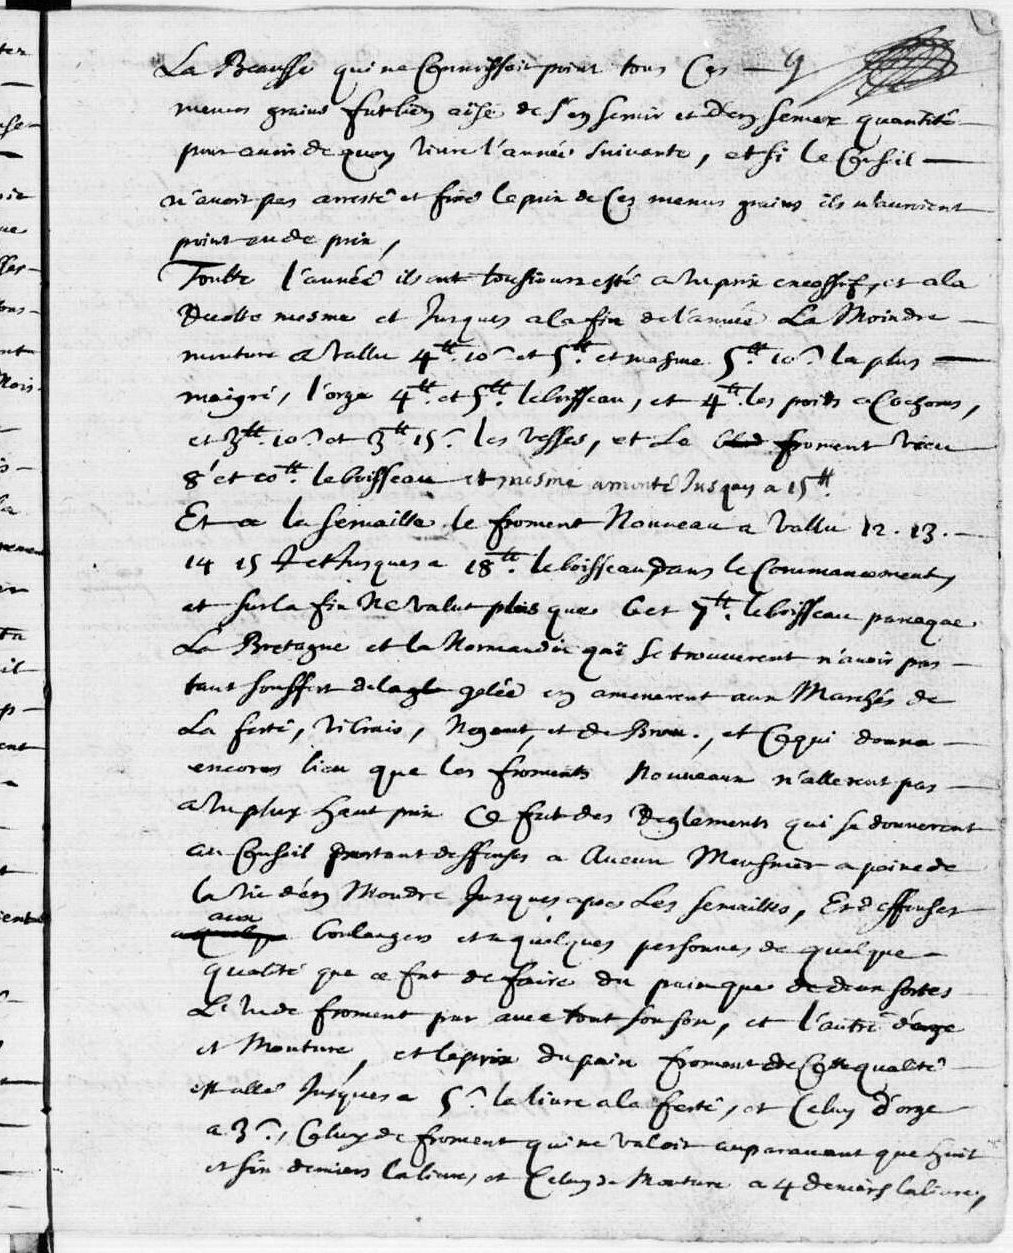 La Beausse qui ne Connoissoit point tous Ces — 9
menus grains fut bien aise de s'en servir et d'en semer quantité
pour avoir de quoy vivre l'année suivante, et si le Conseil —
n'avoit pas arresté et fixé le prix de Ces menus grains ils n'auroient
point eu de prix,
Toutte l'année ils ont tousjours esté a un prix excessif, et a la
Recolte mesme et Jusques a la fin de l'année La Moindre
mouture a vallu 4ᵗᵗ. 10ˢ et 5ᵗᵗ. et mesme 5ᵗᵗ. 10ˢ. la plus —
maigre, l'orge 4ᵗᵗ. et 5ᵗᵗ. le boisseau, et 4ᵗᵗ les poids a Cochons,
et 3ᵗᵗ. 10ˢ et 3ᵗᵗ 15ˢ. les vesses, et Le froment vieu
8 et 10ᵗᵗ. le boisseau et mesme a monté Jusques a 15ᵗᵗ.
Et a la semaille le froment Nouveau a vallu 12. 13. —
14 15 et Jusques a 18ᵗᵗ. le boisseau dans le Commancement,
et sur la fin Ne valut plus que 6 et 7ᵗᵗ. le boisseau parce que
La Bretagne et la Normandie qui se trouverent n'avoir pas —
tant souffert de la gelée en amenerent aux Marchés de
La ferté, Nogent, et de Brou., et Ce qui donna —
encores lieu que les froments Nouveaux n'allerent pas —
a un plus haut prix Ce fut des Reglements qui se donnerent
au Conseil portant deffenses a Aucun Meusnier a peine de
la vie d'en Moudre Jusques apres Les semailles, Et deffenses
aux
Boulangers et a quelques personnes de quelque —
qualité que ce fut de faire du pain que de deux sortes
L'un de froment pur avec tout son son, et l'autre d'orge
et Mouture, et le prix du pain froment de Cette qualité
est allé Jusques a 5ˢ. la livre a la ferté, et Celuy d'orge
a 3ˢ., Celuy de froment qui ne valoit auparavant que huit
et six deniers la livre, et Celuy de Mouture a 4 deniers la livre,